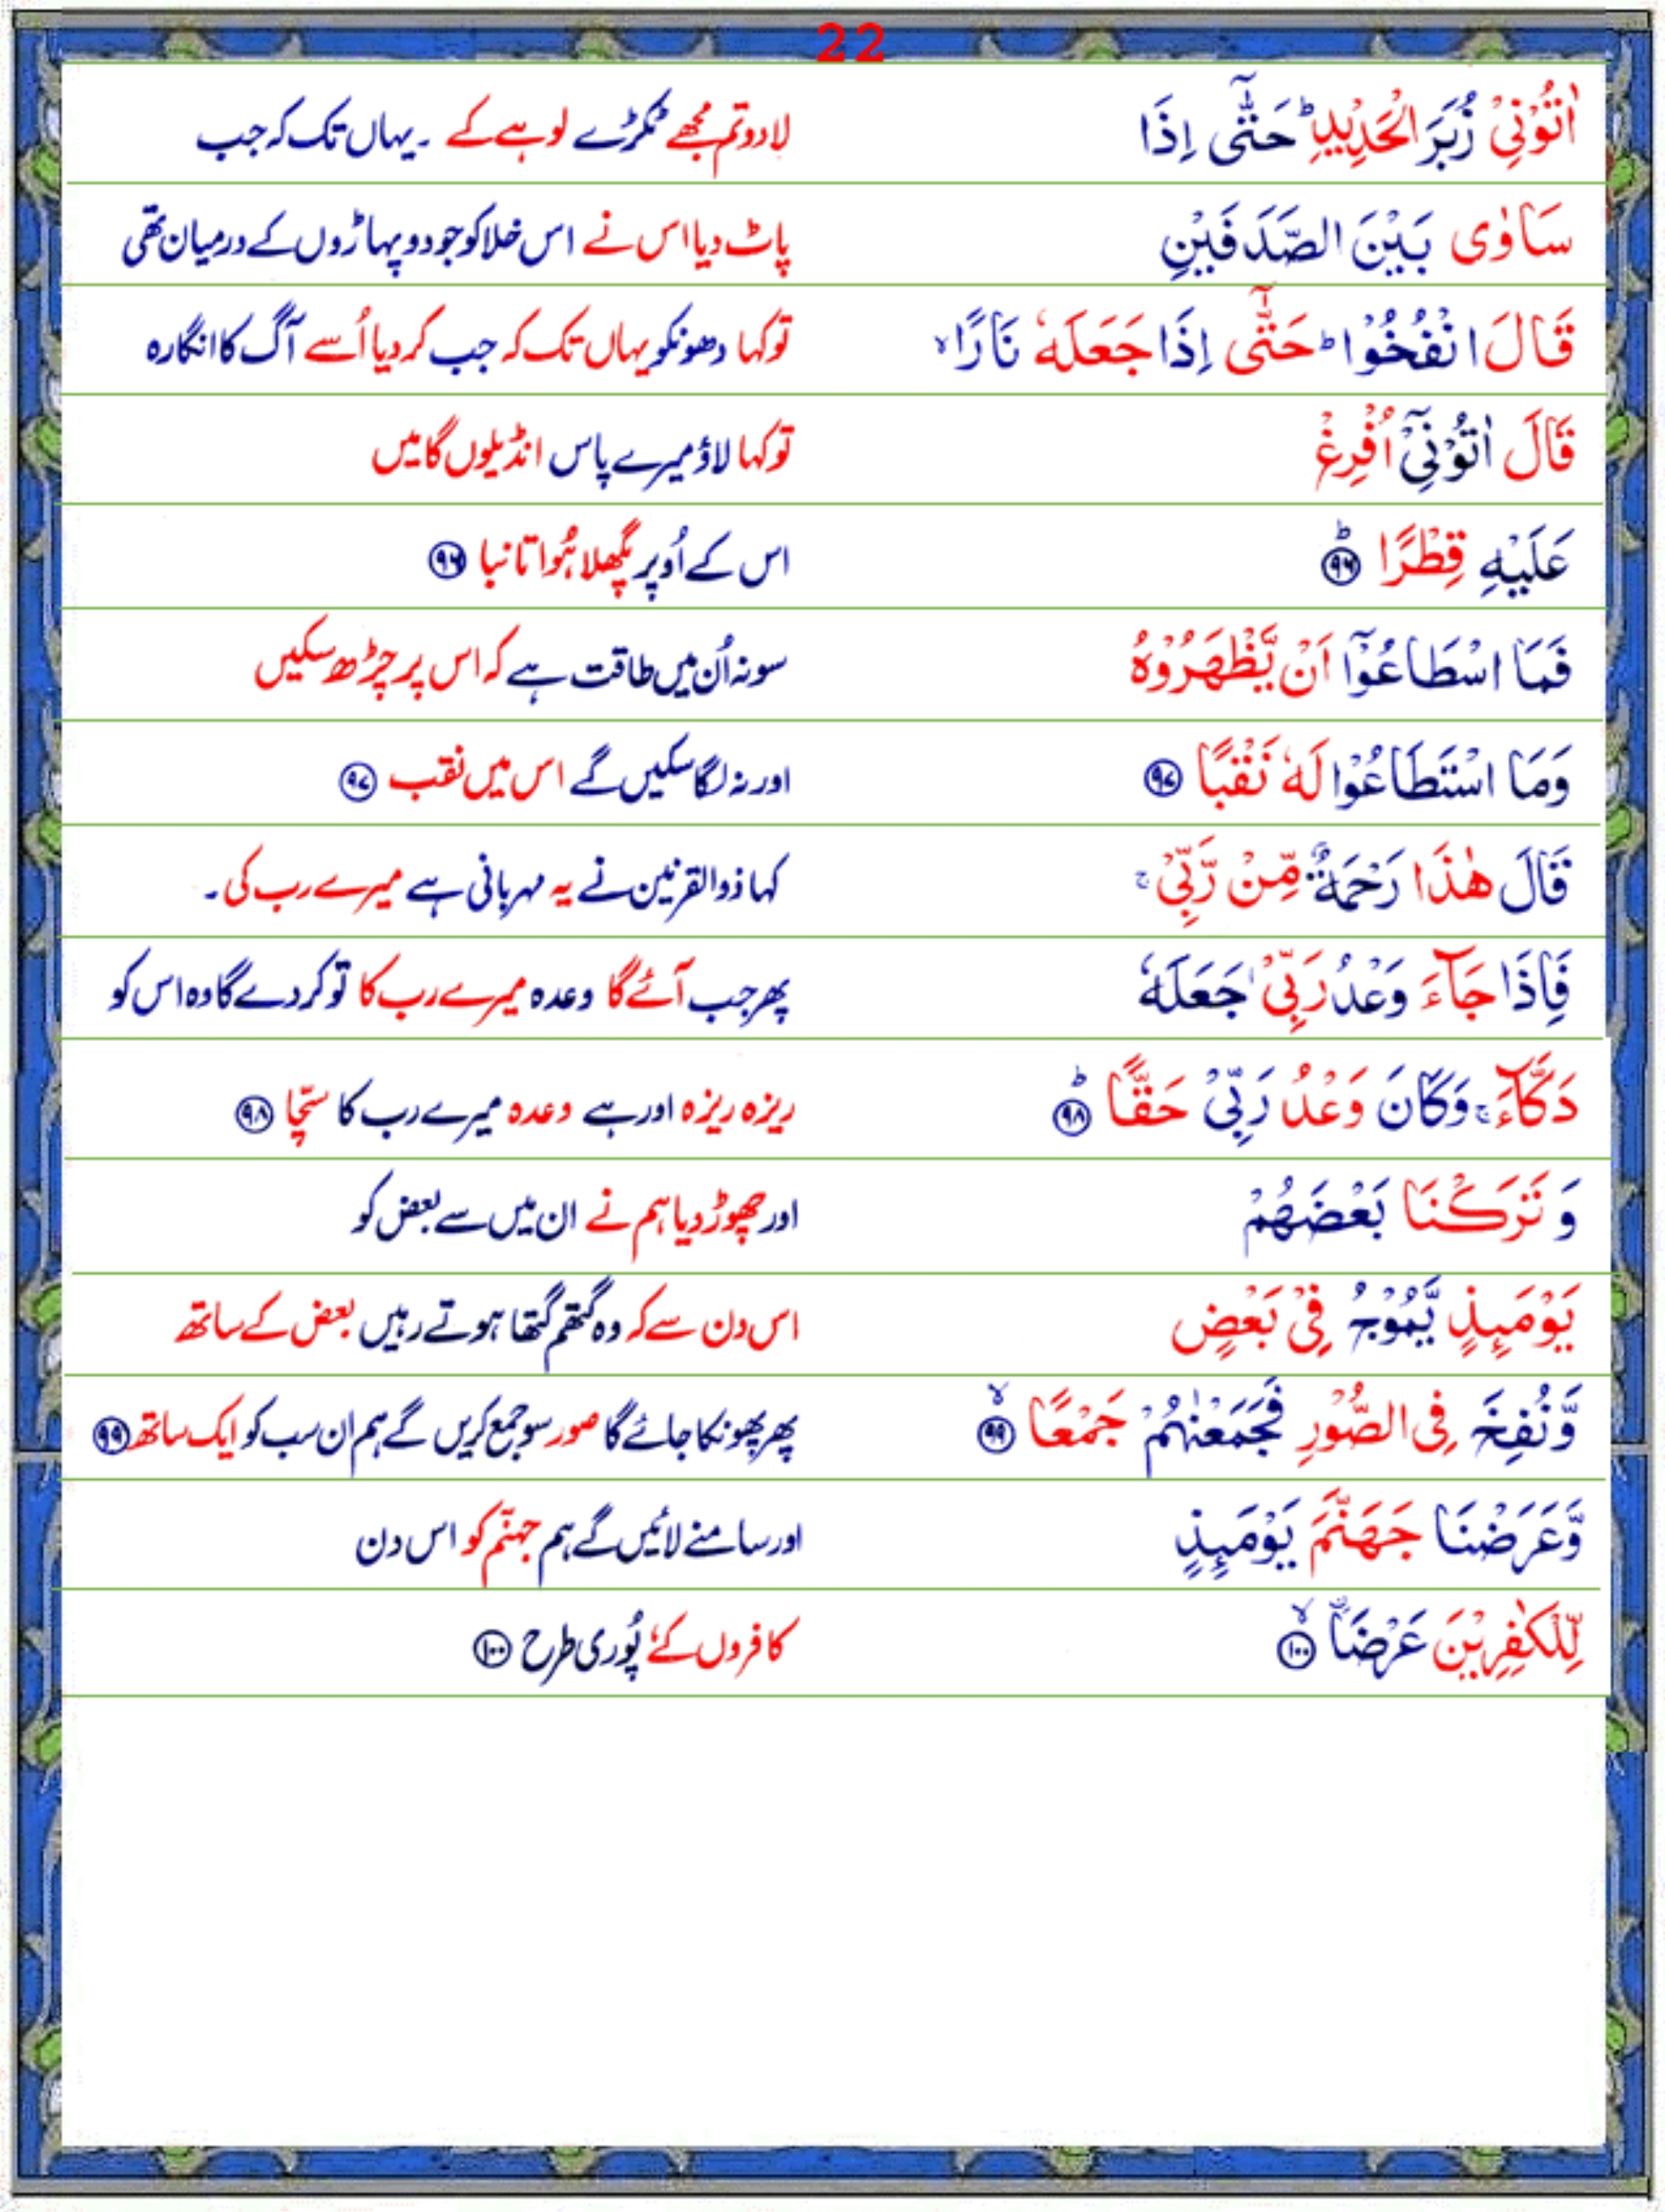 22
اٰتُوْنِیْ زُبَرَ الْحَدِیْدِ ؕ حَتّٰۤی اِذَا لادو تم مجھے ٹکڑے لوہے کے ۔ یہاں تک کہ جب
سَاوٰی بَیْنَ الصَّدَفَیْنِ پاٹ دیا اس نے اس خلا کو جو دو پہاڑوں کے درمیان تھی
قَالَ انْفُخُوْا ؕ حَتّٰۤی اِذَا جَعَلَهٗ نَارًا ۙ تو کہا دھونکو یہاں تک کہ جب کر دیا اُسے آگ کا انگارہ
قَالَ اٰتُوْنِیْۤ اُفْرِغْ تو کہا لاؤ میرے پاس انڈیلوں گا میں
عَلَیْهِ قِطْرًا ؕ ۹۶ اس کے اُوپر پگھلا ہُوا تانبا ۹۶
فَمَا اسْطَاعُوْۤا اَنْ یَّظْهَرُوْهُ سو نہ اُن میں طاقت ہے کہ اس پر چڑھ سکیں
وَمَا اسْتَطَاعُوْا لَهٗ نَقْبًا ۹۷ اور نہ لگا سکیں گے اس میں نقب ۹۷
قَالَ هٰذَا رَحْمَةٌ مِّنْ رَّبِّیْ ۚ کہا ذوالقرنین نے یہ مہربانی ہے میرے رب کی ۔
فَاِذَا جَآءَ وَعْدُ رَبِّیْ جَعَلَهٗ پھر جب آئے گا وعدہ میرے رب کا تو کر دے گا وہ اس کو
دَكَّآءَ ۚ وَكَانَ وَعْدُ رَبِّیْ حَقًّا ؕ ۹۸ ریزہ ریزہ اور ہے وعدہ میرے رب کا سچّا ۹۸
وَ تَرَكْنَا بَعْضَهُمْ اور چھوڑ دیا ہم نے ان میں سے بعض کو
یَوْمَىِٕذٍ یَّمُوْجُ فِیْ بَعْضٍ اس دن سے کہ وہ گتھم گتھا ہوتے رہیں بعض کے ساتھ
وَّنُفِخَ فِی الصُّوْرِ فَجَمَعْنٰهُمْ جَمْعًا ۙ ۹۹ پھر پھونکا جائے گا صور سو جمع کریں گے ہم ان سب کو ایک ساتھ ۹۹
وَّعَرَضْنَا جَهَنَّمَ یَوْمَىِٕذٍ اور سامنے لائیں گے ہم جہنّم کو اس دن
لِّلْكٰفِرِیْنَ عَرْضَا ۙ ۱۰۰ کافروں کےٗ پُوری طرح ۱۰۰